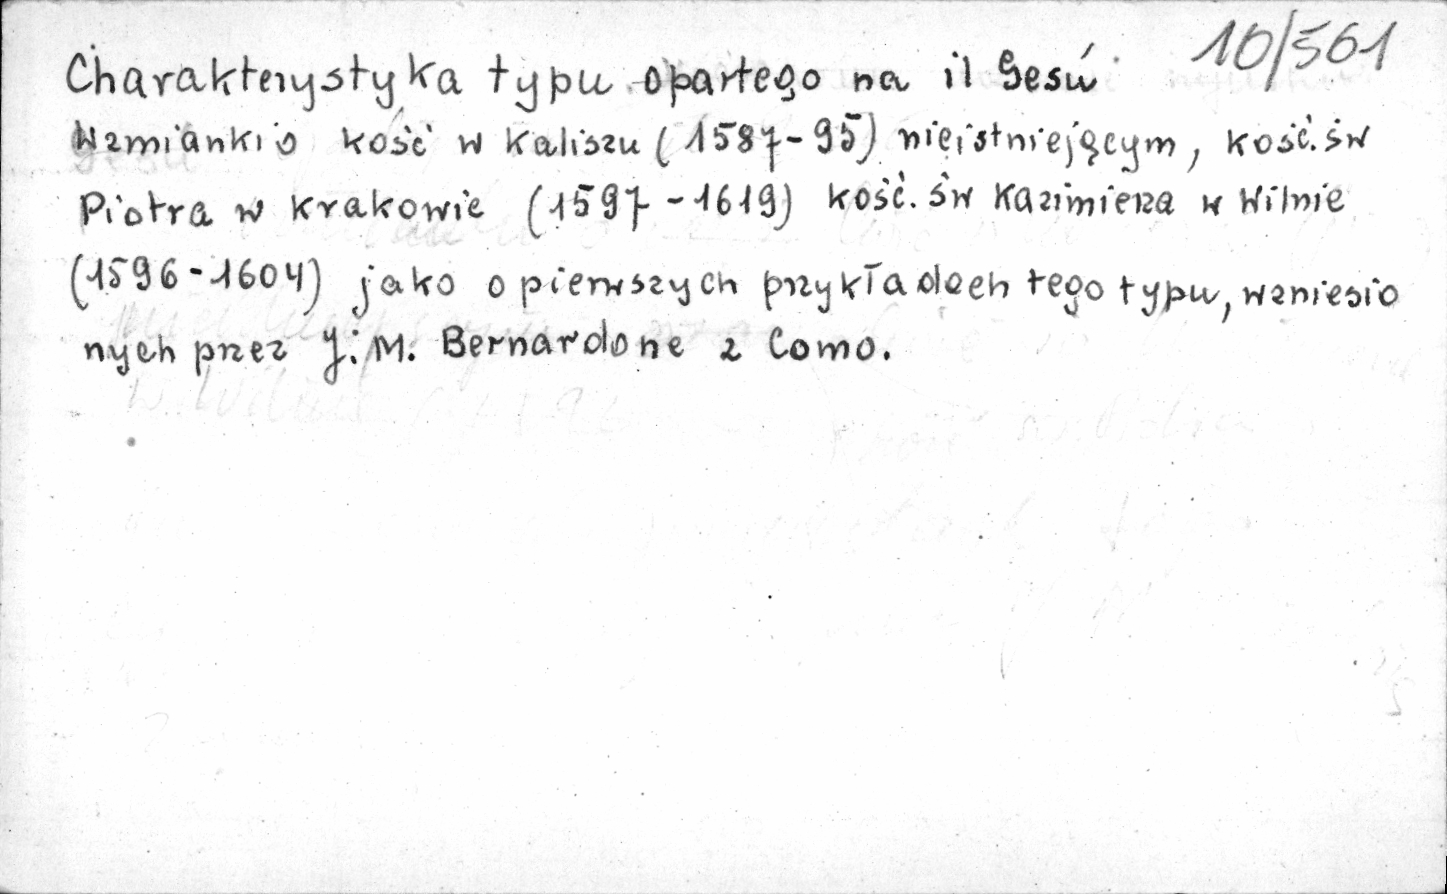 10/561
Charakterystyka typu opartego na il Gesú
Wzmianki o kość w Kaliszu (1587-95) nieistniejącym, kość. św
Piotra w Krakowie (1597-1619) kość. św Kazimierza w Wilnie
(1596-1604) jako o pierwszych przykładach tego typu, wzniesio
nych przez J. M. Bernardone z Como.